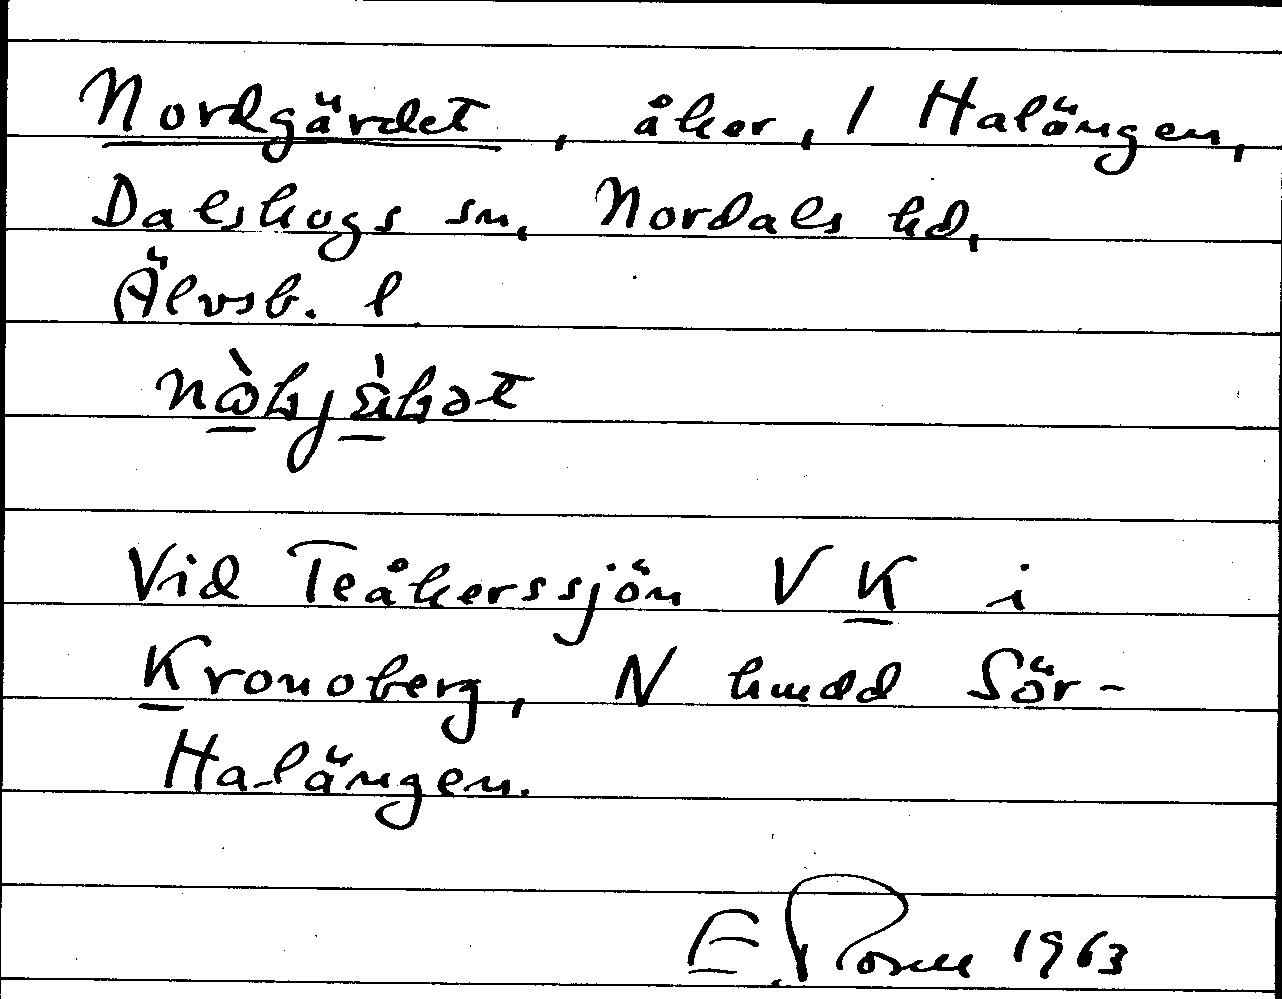 Nordgärdet, åker, 1 Halängen,
Dalskogs sn, Nordals hd,
Älvsb. l
Vid Teåkerssjön V K i
Kronoberg, N hmdd Sör-
Halängen.
E. Rosell 1963